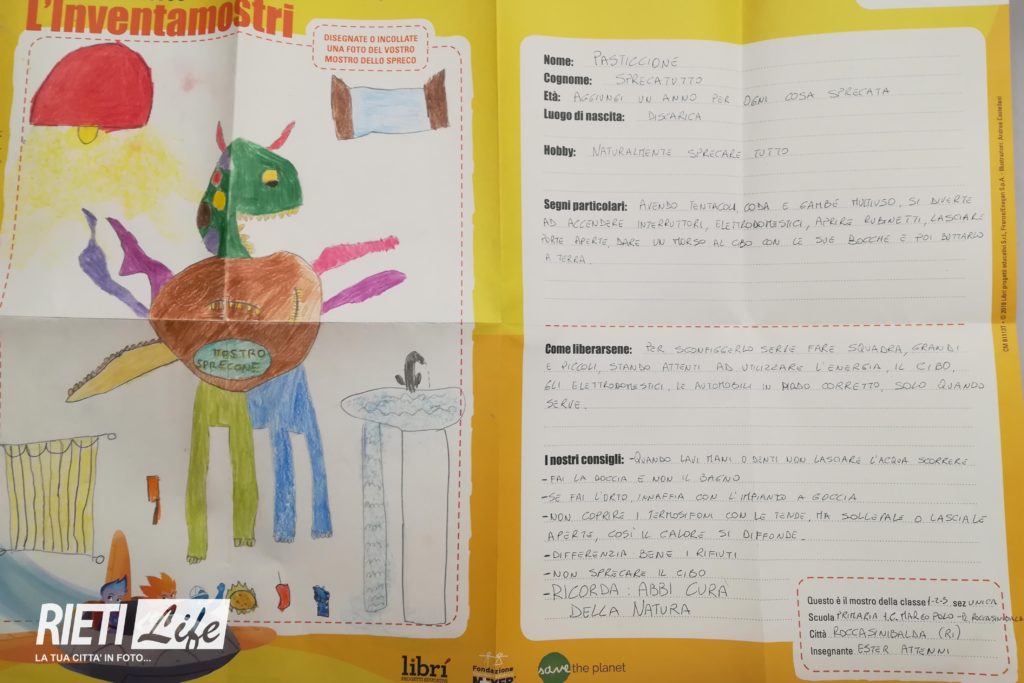 L'Inventamostri
DISEGNATE O INCOLLATE
UNA FOTO DEL VOSTRO
MOSTRO DELLO SPRECO
MOSTRO
SPRECONE
Nome: PASTICCIONE
Cognome: SPRECATUTTO
Età: AGGIUNGI UN ANNO PER OGNI COSA SPRECATA
Luogo di nascita: DISCARICA
Hobby: NATURALMENTE SPRECARE TUTTO
Segni particolari: AVENDO TENTACOLI, CODA E GAMBE MULTIUSO, SI DIVERTE
AD ACCENDERE INTERRUTTORI, ELETTRODOMESTICI, APRIRE RUBINETTI, LASCIARE
PORTE APERTE, DARE UN MORSO AL CIBO CON LE SUE BOCCHE E POI BUTTARLO
A TERRA.
Come liberarsene: PER SCONFIGGERLO SERVE FARE SQUADRA, GRANDI
E PICCOLI, STANDO ATTENTI AD UTILIZZARE L'ENERGIA, IL CIBO,
GLI ELETTRODOMESTICI, LE AUTOMOBILI IN MODO CORRETTO, SOLO QUANDO
SERVE.
I nostri consigli: -QUANDO LAVI MANI O DENTI NON LASCIARE L'ACQUA SCORRERE
-FAI LA DOCCIA E NON IL BAGNO
-SE FAI L'ORTO, INNAFFIA CON L'IMPIANTO A GOCCIA
-NON COPRIRE I TERMOSIFONI CON LE TENDE, MA SOLLEVALE O LASCIALE
APERTE, COSÌ IL CALORE SI DIFFONDE.
-DIFFERENZIA BENE I RIFIUTI
-NON SPRECARE IL CIBO
-RICORDA: ABBI CURA
DELLA NATURA
Questo è il mostro della classe 1-2-3 sez UNICA
Scuola PRIMARIA I.C. MARCO POLO - ROCCASINIBALDA
Città ROCCASINIBALDA (RI)
Insegnante ESTER ATTENNI
RIETI Life
LA TUA CITTA' IN FOTO...
librí
PROGETTI EDUCATIVI
Fondazione
MEYER
save the planet